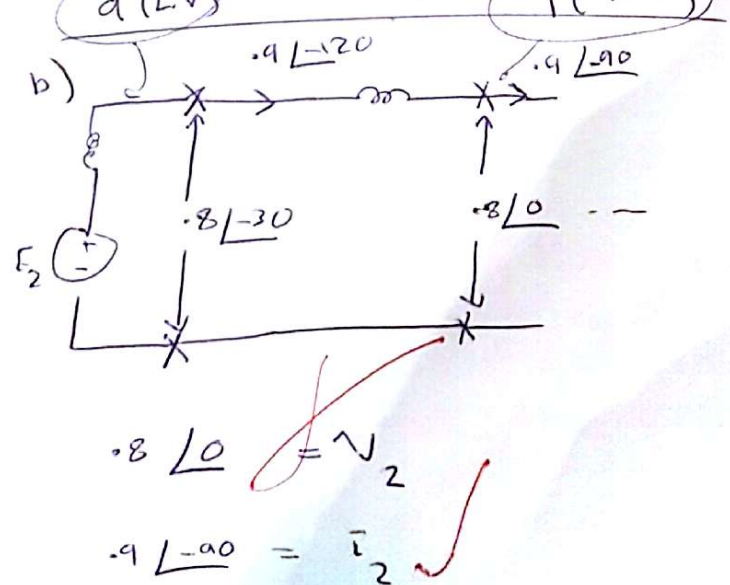 b)
.9∠-120
.9∠-90
.8∠-30
.8∠0 - -
E2
+
-
.8∠0 = V2
.9∠-90 = I2